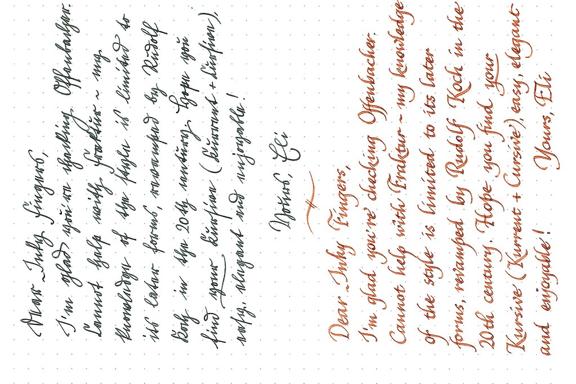 Dear Inky Fingers,
I'm glad you're checking Offenbacher.
Cannot help with Fraktur ~ my
knowledge of the style is limited to
its later forms, revamped by Rudolf
Koch in the 20th century. Hope you
find your Kursive (Kurrent + Cursive),
easy, elegant and enjoyable!
Yours, Eli
Dear Inky Fingers,
I'm glad you're checking Offenbacher.
Cannot help with Fraktur ~ my knowledge
of the style is limited to its later
forms, revamped by Rudolf Koch in the
20th century. Hope you find your
Kursive (Kurrent + Cursive), easy, elegant
and enjoyable!
Yours, Eli